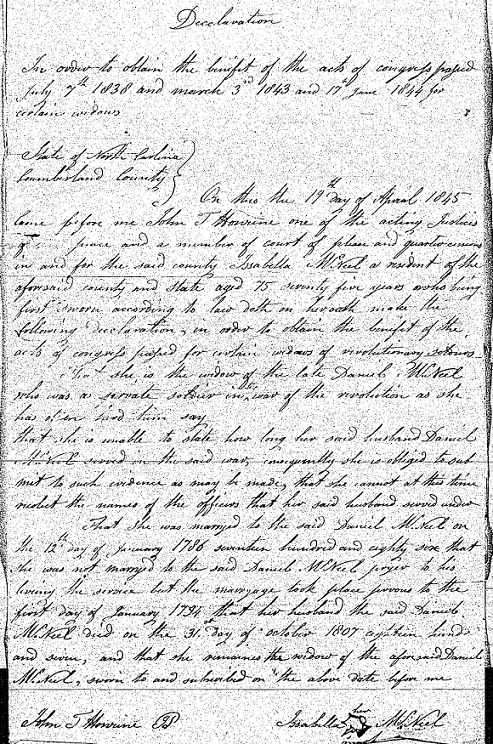 Decclaration
In order to obtain the binifit of the acts of congress passed
July 7th 1838 and march 3rd 1843 and 17th June 1844 for
certain widows
State of North Carlina
Cumberland County
On this the 19th day of April 1845
came before me John T one of the acting Justices
peace and a member of court of pleas and quarter
in and for the said county Issabella McNeil a resident of the
aforesaid county and state aged 75 seventy five years who being
first sworn according to law doth on her oath make the
following decclaration, in order to obtain the benifit of the
acts of congress passed for certain widows of revolutionary
she is the widow of the late Daniel McNeil
who was a private soldier in the war of the revolution as she
has him say
that she is unable to state how long her said husband Daniel
McNeil served in the said war, consequently she is obliged to sub
mit to such evidence as may be made, that she cannot at this time
recolect the names of the officers that her said husband served under
That she was marryed to the said Daniel McNeil on
the 12th day of January 1786 seventeen hundred and eighty six that
she was not marryed to the said Daniel McNeil pryer to his
leveing the service but the marryage took place prevous to the
first day of January 1794 that her husband the said Daniel
McNeil died on the 31st day of october 1807 hundr
and seven, and that she remaines the widow of the aforesaid Daniel
McNeil, sworn to and subscribed on the above date before me
John T Issabella her McNeil